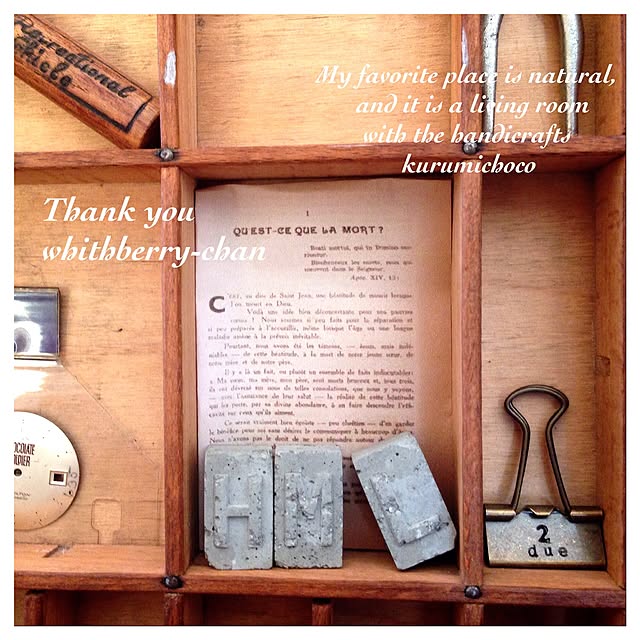 Recreational
Article
My favorite place is natural,
and it is a living room
with the handicrafts
kurumichoco
Thank you
whithberry-chan
1
QU'EST-CE QUE LA MORT ?
Beati mortui, qui in Domino mo-
riuntur.
Bienheureux les morts, ceux qui
meurent dans le Seigneur.
Apoc. XIV, 13.
C'EST, au dire de Saint Jean, une béatitude de mourir lorsque
l'on meurt en Dieu.
Voilà une idée bien déconcertante pour nos pauvres
cœurs ! Nous sommes si peu faits pour la séparation et
si peu préparés à l'accueillir, même lorsque l'âge ou une longue
maladie amène à la prévoir inévitable.
Pourtant, nous avons été les témoins,
— de cette béatitude, à la mort de notre jeune sœur, de
notre mère et de notre père.
Il y a là un fait, ou plutôt un ensemble de faits indiscutables:
« Ma sœur, ma mère, mon père, sont morts heureux et, tous trois,
ils ont déversé sur nous de telles consolations, que nous y voyons,
— avec l'assurance de leur salut — la réalité de cette béatitude
qui les porte, par sa divine abondance, à en faire descendre l'eff-
sur ceux qu'ils aiment.
Ce serait vraiment bien égoïste — peu chrétien — d'en garder
le bénéfice pour soi sans désirer le communiquer à beaucoup d'
Nous n'avons pas le droit de ne pas répandre autour de
H M L
CHOCOLATE
SOLDIER
2
due